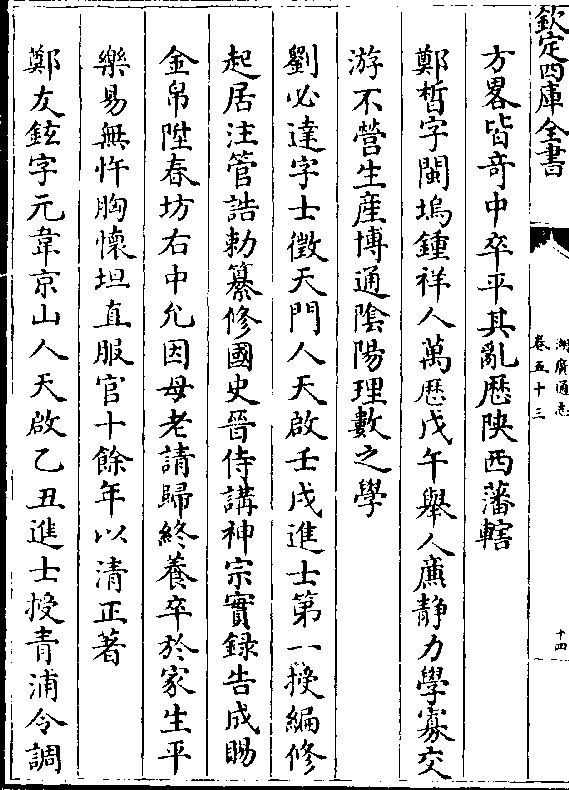 欽定四庫全書
湖廣通志
卷五十三
十四
方畧皆竒中卒平其亂歴陜西藩轄
鄭晳字閩塢鍾祥人萬歴戊午舉人廉静力學寡交
游不營生産博通隂陽理數之學
劉必達字士徵天門人天啟壬戌進士第一授編修
起居注管誥勅纂修國史晉侍講神宗實録告成賜
金帛陞春坊右中允因母老請歸終養卒於家生平
樂易無忤胸懷坦直服官十餘年以清正著
鄭友鉉字元韋京山人天啟乙丑進士授青浦令調